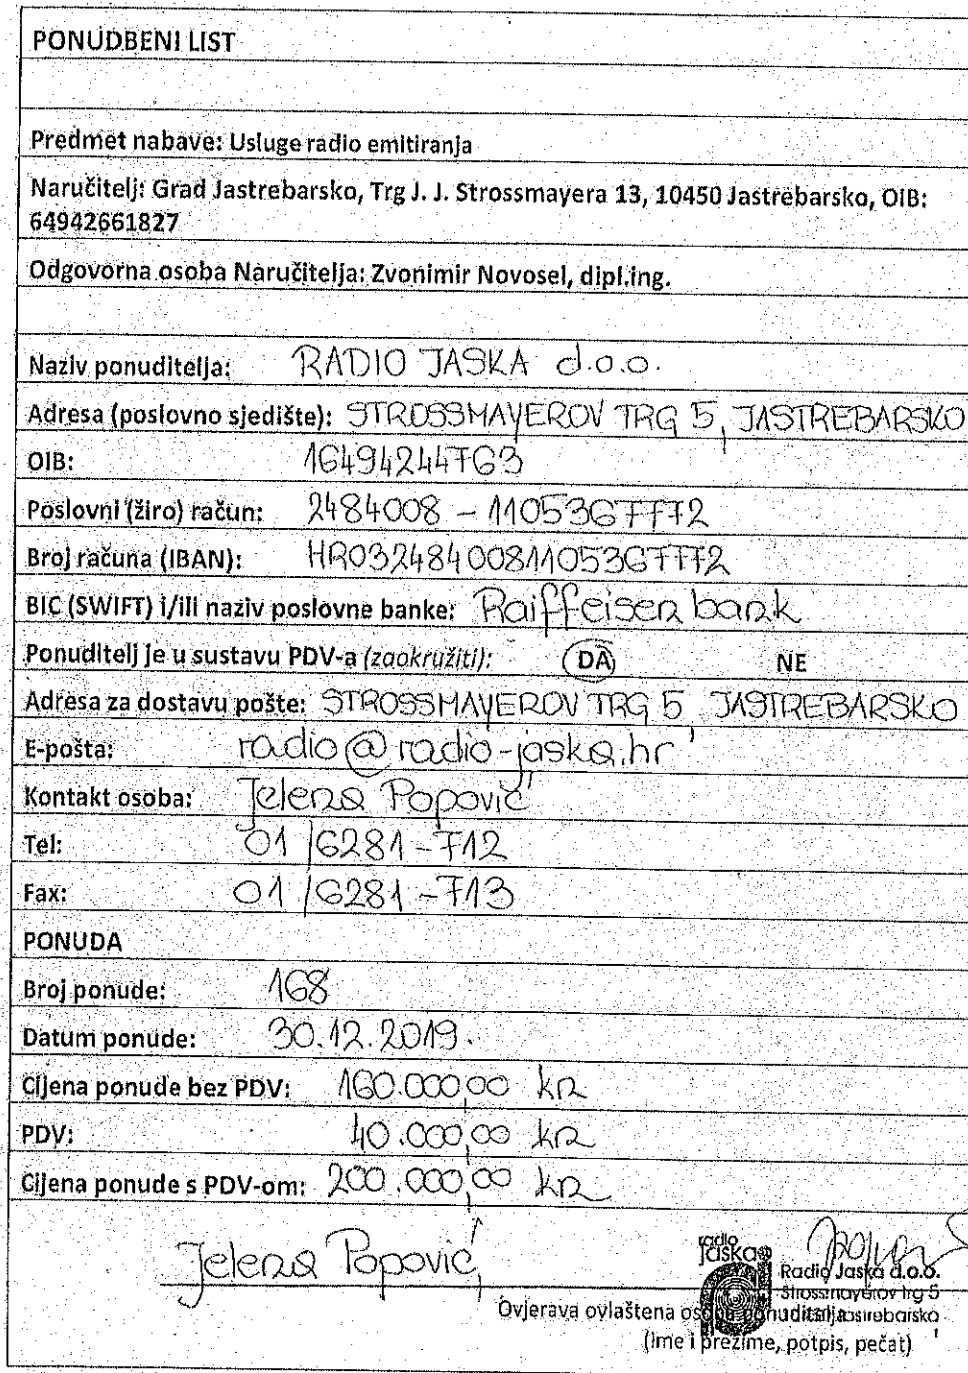 PONUDBENI LIST
Predmet nabave: Usluge radio emitiranja
Naručitelj: Grad Jastrebarsko, Trg J. J. Strossmayera 13, 10450 Jastrebarsko, OIB:
64942661827
Odgovorna osoba Naručitelja: Zvonimir Novosel, dipl.ing.
Naziv ponuditelja: RADIO JASKA d.o.o.
Adresa (poslovno sjedište): STROSSMAYEROV TRG 5, JASTREBARSKO
OIB: 16494244763
Poslovni (žiro) račun: 2484008 - 1105367772
Broj računa (IBAN): HR0324840081105367772
BIC (SWIFT) i/ili naziv poslovne banke: Raiffeisen bank
Ponuditelj je u sustavu PDV-a (zaokružiti): DA NE
Adresa za dostavu pošte: STROSSMAYEROV TRG 5, JASTREBARSKO
E-pošta: radio@radio-jaska.hr
Kontakt osoba: Jelena Popović
Tel: 01/6281-712
Fax: 01/6281-713
PONUDA
Broj ponude: 168
Datum ponude: 30.12.2019.
Cijena ponude bez PDV: 160.000,00 kn
PDV: 40.000,00 kn
Cijena ponude s PDV-om: 200.000,00 kn
Jelena Popović,
radio
jaska
Radio Jaska d.o.o.
Strossmayerov trg 5
Jastrebarsko
Ovjerava ovlaštena osoba ponuditelja
(ime i prezime, potpis, pečat)